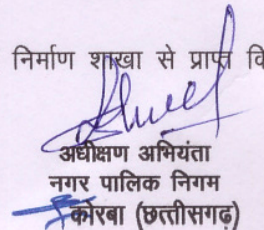 निर्माण शाखा से प्राप्त वि
अधीक्षण अभियंता
नगर पालिक निगम
कोरबा (छत्तीसगढ़)